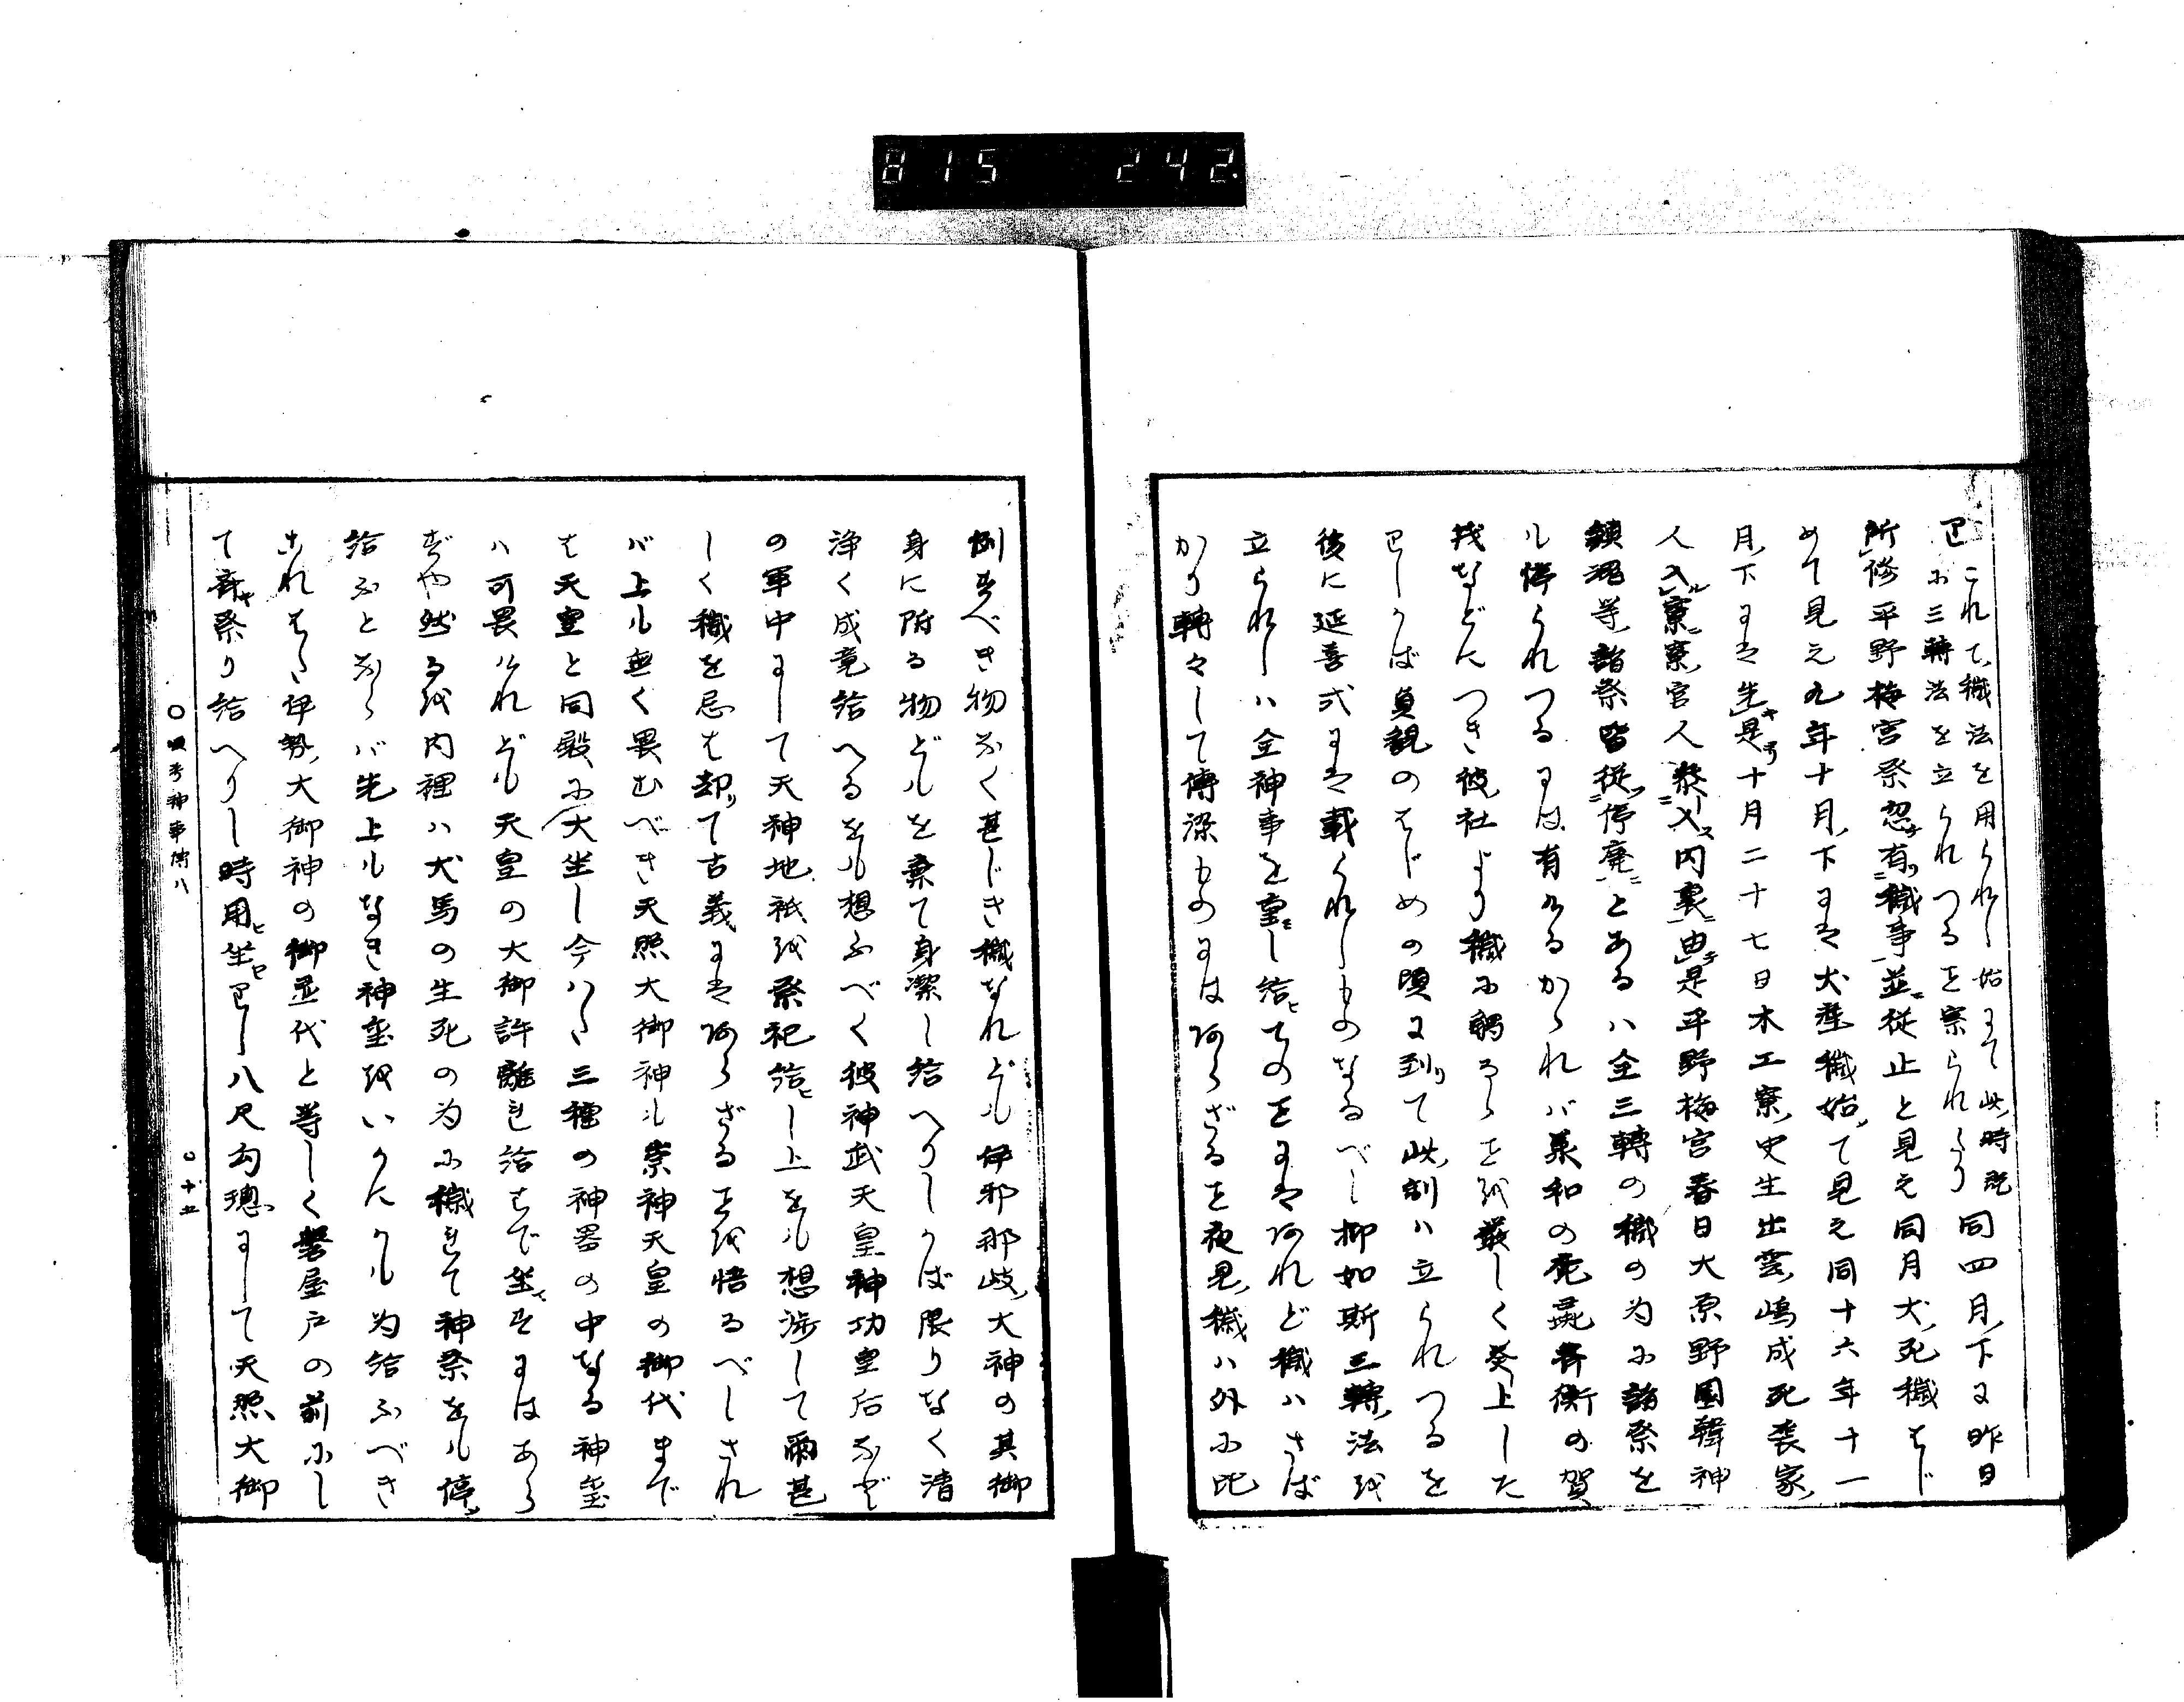 815 242.
これて、穢法を用られし始にて此時既
に三轉法を立られつるを察られたり 同四月、下に昨日
所修平野梅宮祭忽有穢事並從止と見え同月犬死穢はじ
めて見え九年十月、下には犬産穢始て見え同十六年十一
月、下には先是十月二十七日木工寮史生出雲嶋成死喪家、
人入寮寮官人參入内裏由是平野梅宮春日大原野園韓神
鎮魂等諸祭皆從停廢とあるハ全三轉の穢の為に諸祭を
ル停られつるには有けるかゝれバ承和の
などにつき彼社より穢に觸るゝを嚴しく上した
しかば貞觀のはじめの頃に到て此制ハ立られつるを
後に延喜式には載られしものなるべし抑如斯三轉法を
立られしハ全神事を重し給てのにはあれど穢ハさば
かり轉々して傳染ものにはあらざるを夜見穢ハ外に比
例すべき物なく甚じき穢なれども伊邪那岐大神の其御
身に附る物どもを棄て身潔し給へりしかば限りなく清
浄く成竟給へるをも想ふべく彼神武天皇神功皇后など
の軍中にして天神地祇を祭祀給し上をも想渉して爾甚
しく穢を忌は却て古義にはあらざるを悟るべしされ
バ上も無く畏むべき天照大御神も崇神天皇の御代まで
は天皇と同殿に大坐し今ハた三種の神器の中なる神璽
ハ可畏けれども天皇の大御許離れ給はで坐すにはあら
ずや然るを内裡ハ犬馬の生死の為に穢れて神祭をも停
給ふとならバ先上もなき神璽をいかにかも為給ふべき
これはた伊勢大御神の御霊代と等しく磐屋戸の前にし
て齋祭り給へりし時用坐しゝ八尺勾璁にして天照大御
〇 神事 八
〇十五